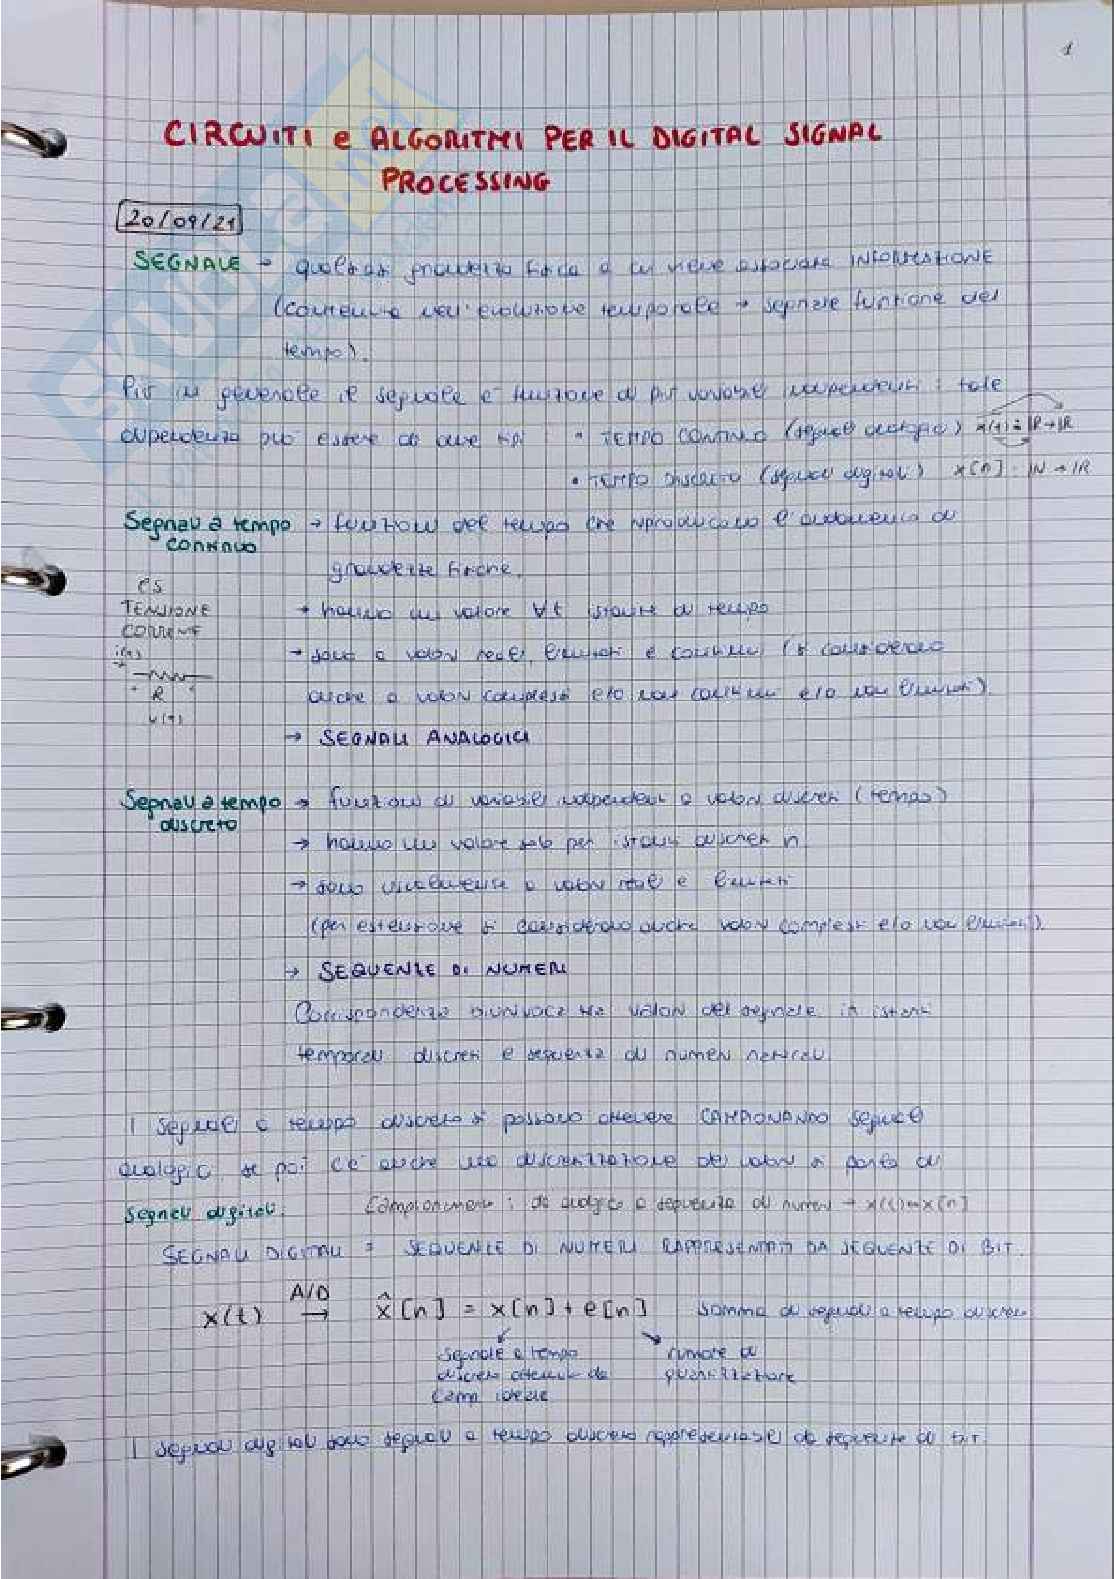 1
CIRCUITI e ALGORITMI PER IL DIGITAL SIGNAL
PROCESSING
20/09/21
SEGNALE → qualsiasi grandezza fisica a cui viene associata INFORMAZIONE
(contenuta nell'evoluzione temporale → segnale funzione del
tempo).
Più in generale il segnale è funzione di più variabili indipendenti : tale
dipendenza può essere di due tipi : • TEMPO CONTINUO (segnali analogici) x(t) : IR → IR
• TEMPO DISCRETO (segnali digitali) x[n] : IN → IR
Segnali a tempo → funzioni del tempo che riproducono l'andamento di
continuo
grandezze fisiche.
es
TENSIONE → hanno un valore ∀t istante di tempo
CORRENTE
i(t) → sono a valori reali, limitati e continui (si considerano
R anche a valori complessi e/o non continui e/o non limitati).
v(t)
→ SEGNALI ANALOGICI
Segnali a tempo → funzioni di variabili indipendenti a valori discreti (tempo)
discreto
→ hanno un valore solo per istanti discreti n
→ sono a valori reali e limitati
(per estensione si considerano anche valori complessi e/o non limitati).
→ SEQUENZE DI NUMERI
Corrispondenza biunivoca tra valori del segnale in istanti
temporali discreti e sequenza di numeri naturali.
I segnali a tempo discreto si possono ottenere CAMPIONANDO segnali
analogici, se poi c'è anche una discretizzazione dei valori si parla di
segnali digitali. Campionamento : da analogico a sequenza di numeri → x(t) → x[n]
SEGNALI DIGITALI = SEQUENZE DI NUMERI RAPPRESENTATI DA SEQUENZE DI BIT.
x(t) A/D → x̂[n] = x[n] + e[n] somma di segnali a tempo discreto
segnale a tempo rumore di
discreto ottenuto da quantizzazione
camp. ideale
I segnali digitali sono segnali a tempo discreto rappresentabili da sequenze di bit.